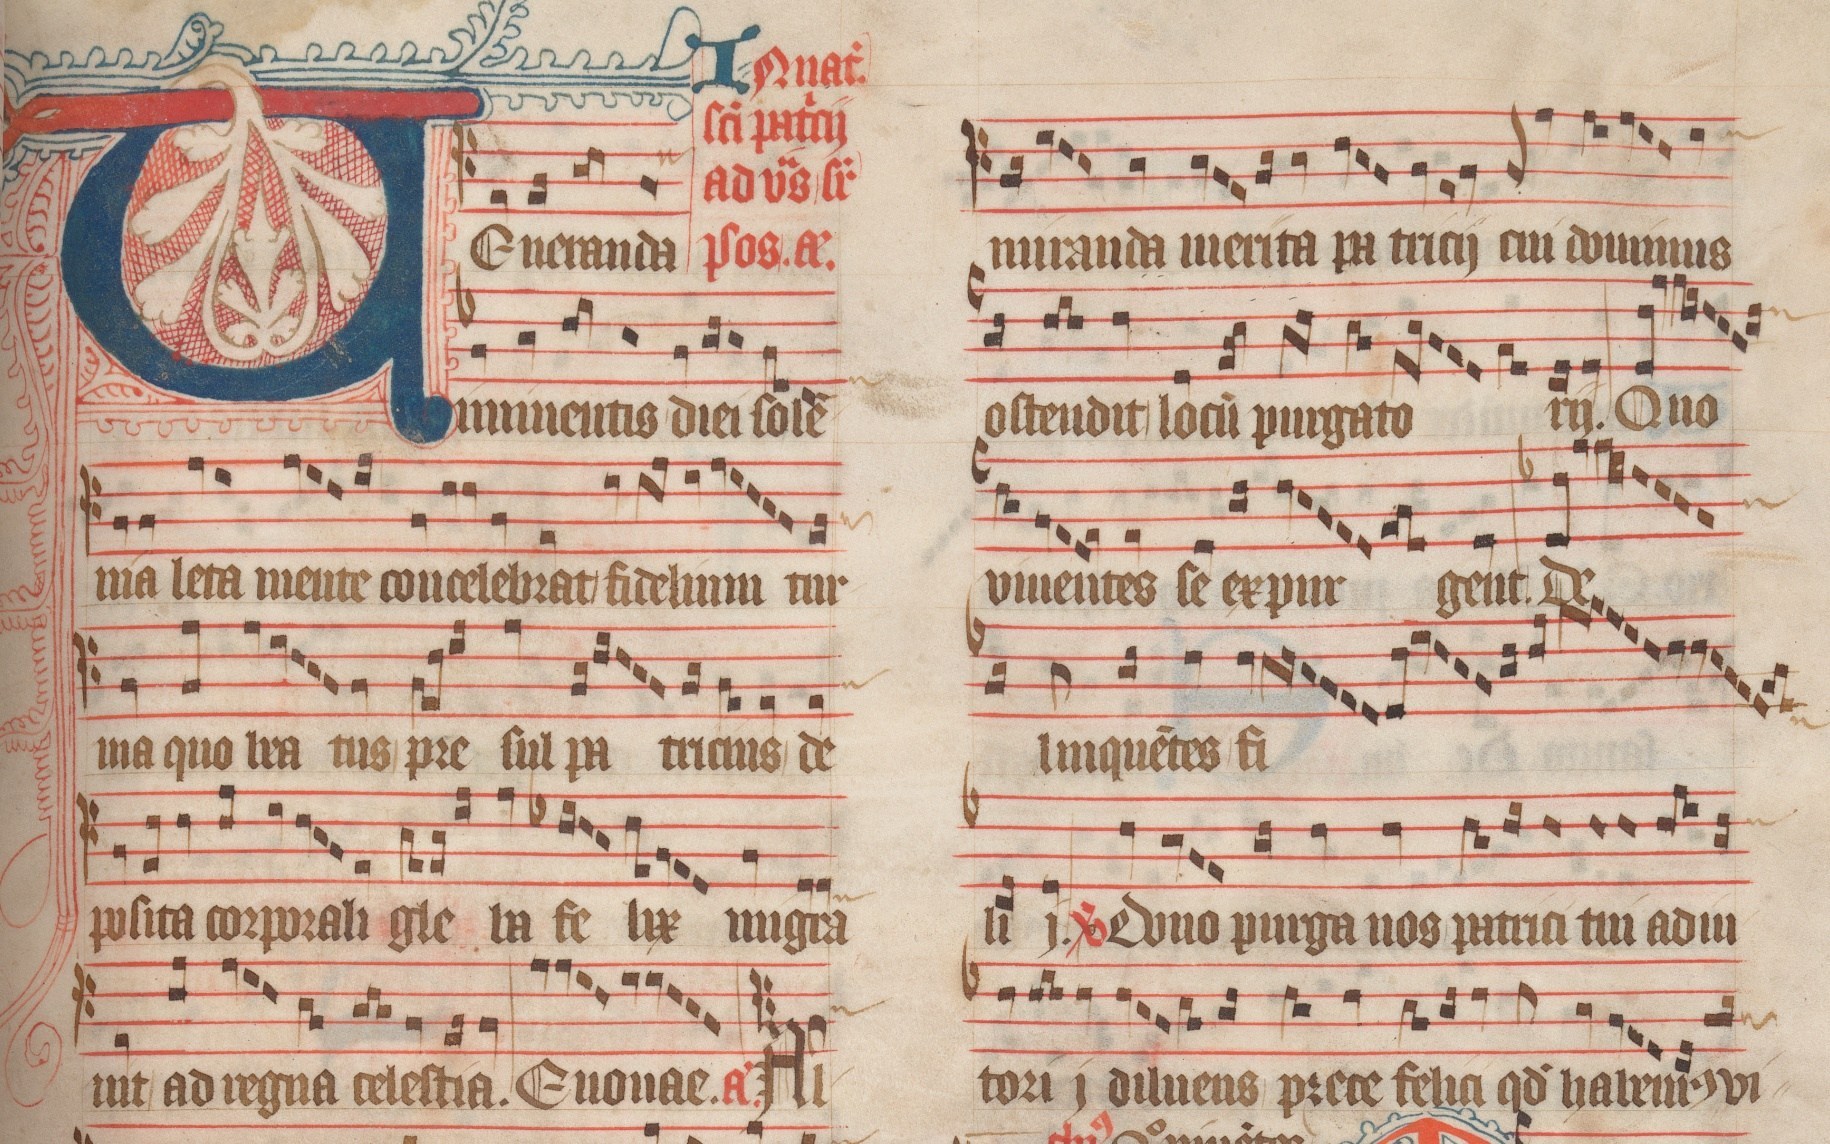 In nat'
sci pat'cij
ad v̄s sr̄
Veneranda psos. añ.
imminentis diei solē
nia leta mente concelebrat fidelium tur
ma quo bea tus pre sul pa tricius de
posita corporali gle ba fe lix migra
uit ad regna celestia. Euouae. a'. Al
miranda merita pa tricij cui dominus
ostendit locū purgato rij. Quo
viuentes se expur gent. De
linquētes fi
li j. ℣ Domo purga nos patrici tui adiu
tori j diluens prece felici qd habem9 vi